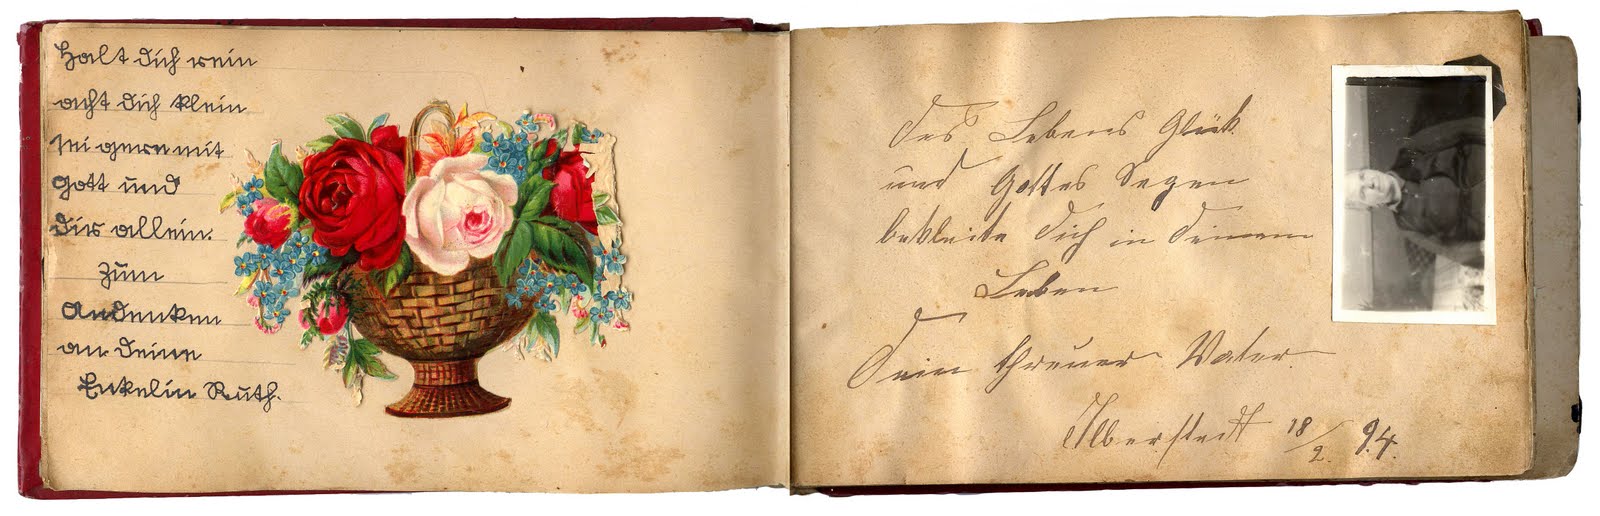 Halt dich rein
acht dich klein
sei gern mit
Gott und
dir allein.
Zum
Andenken
an deine
Enkelin Ruth.
Des Lebens Glück
und Gottes Segen
bekleite dich in deinem
Leben
Dein threuer Vater.
Ilberstedt 18/2. 94.